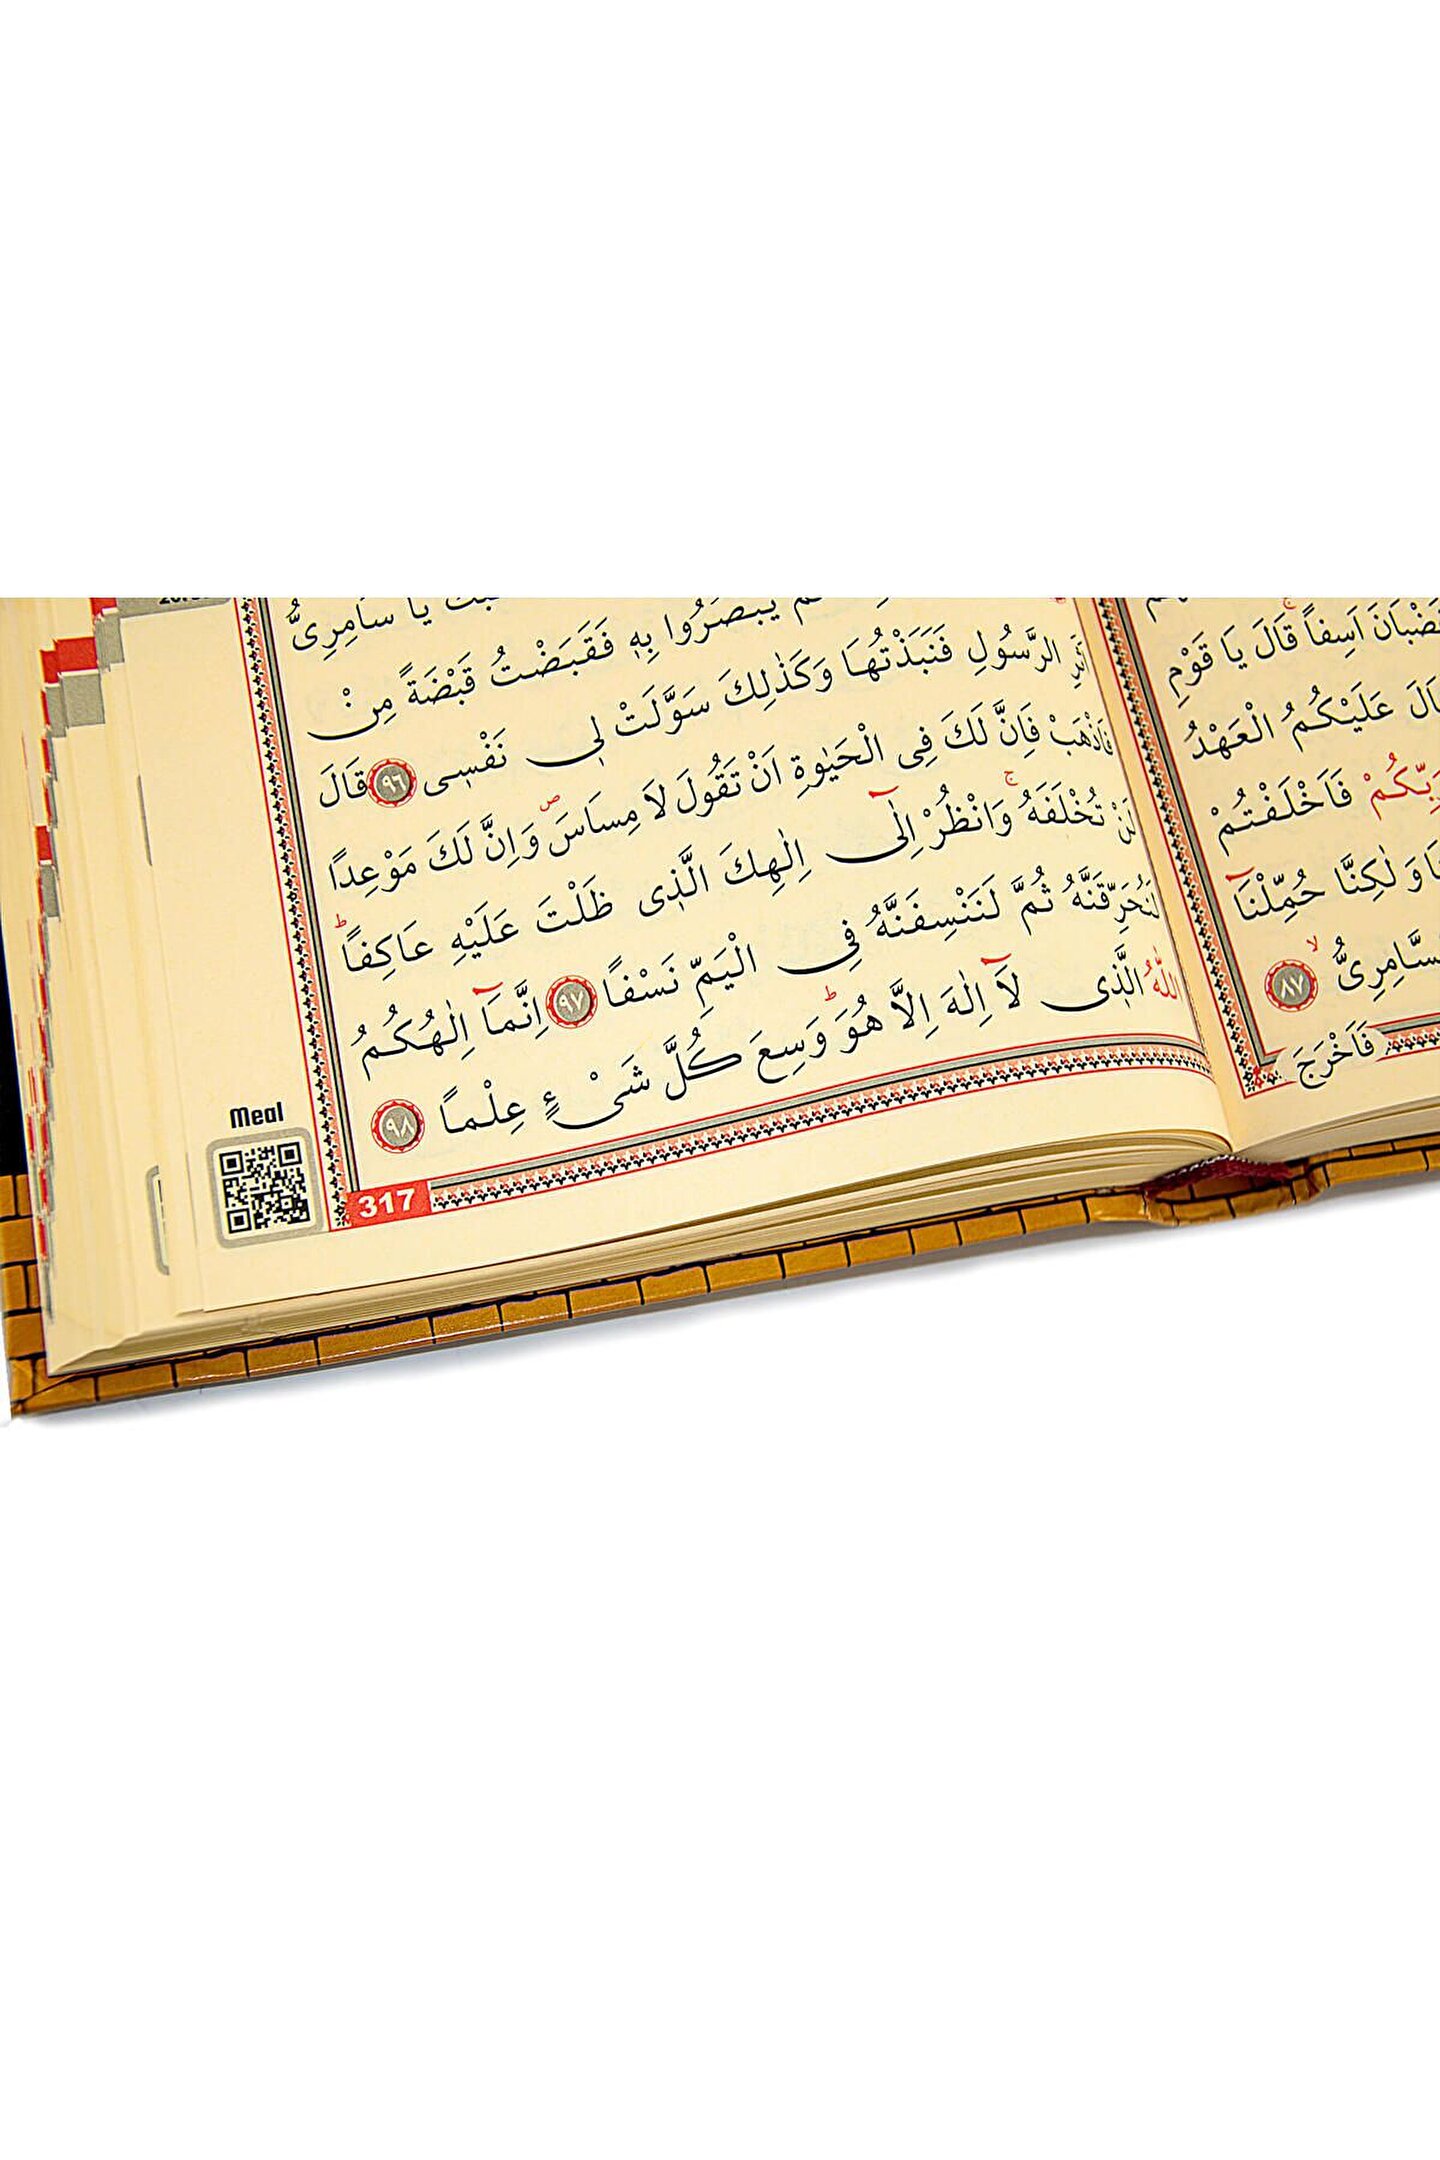 غَضْبَانَ اَسِفاً قَالَ يَا قَوْمِ
قَالَ عَلَيْكُمُ الْعَهْدُ
رَبِّكُمْ فَاَخْلَفْتُمْ
وَلٰكِنَّا حُمِّلْنَٓا
السَّامِرِىُّ ﴿٨٧﴾
فَاَخْرَجَ
يَا سَامِرِىُّ
يَبْصُرُوا بِهٖ فَقَبَضْتُ قَبْضَةً مِنْ
اَثَرِ الرَّسُولِ فَنَبَذْتُهَا وَكَذٰلِكَ سَوَّلَتْ لٖى نَفْسٖى ﴿٩٦﴾ قَالَ
فَاذْهَبْ فَاِنَّ لَكَ فِى الْحَيٰوةِ اَنْ تَقُولَ لَا مِسَاسَ وَاِنَّ لَكَ مَوْعِداً
لَنْ تُخْلَفَهُ وَانْظُرْ اِلٰٓى اِلٰهِكَ الَّذٖى ظَلْتَ عَلَيْهِ عَاكِفاً
لَنُحَرِّقَنَّهُ ثُمَّ لَنَنْسِفَنَّهُ فِى الْيَمِّ نَسْفاً ﴿٩٧﴾ اِنَّمَٓا اِلٰهُكُمُ
اللّٰهُ الَّذٖى لَٓا اِلٰهَ اِلَّا هُوَ وَسِعَ كُلَّ شَىْءٍ عِلْماً ﴿٩٨﴾
Meal
317